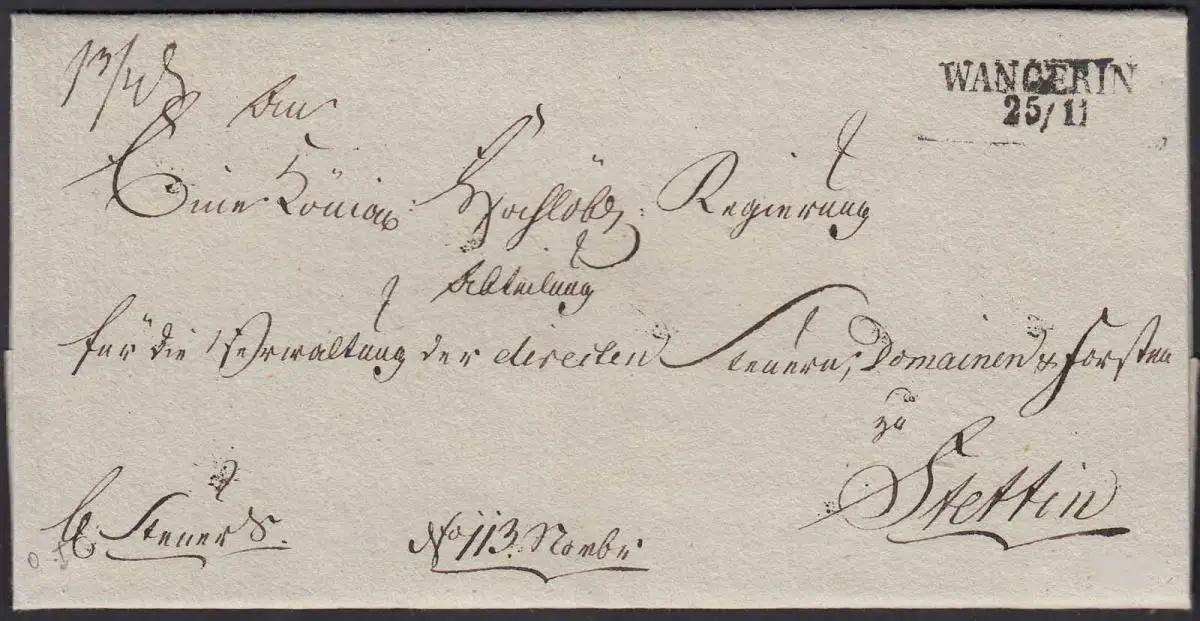 WANGERIN
25/11
An
Eine Königl: Hochlöbl: Regierung
Abteilung
für die Verwaltung der directen Steuern, Domainen & Forsten
zu
Stettin
Steuer S.
No 113. Novbr